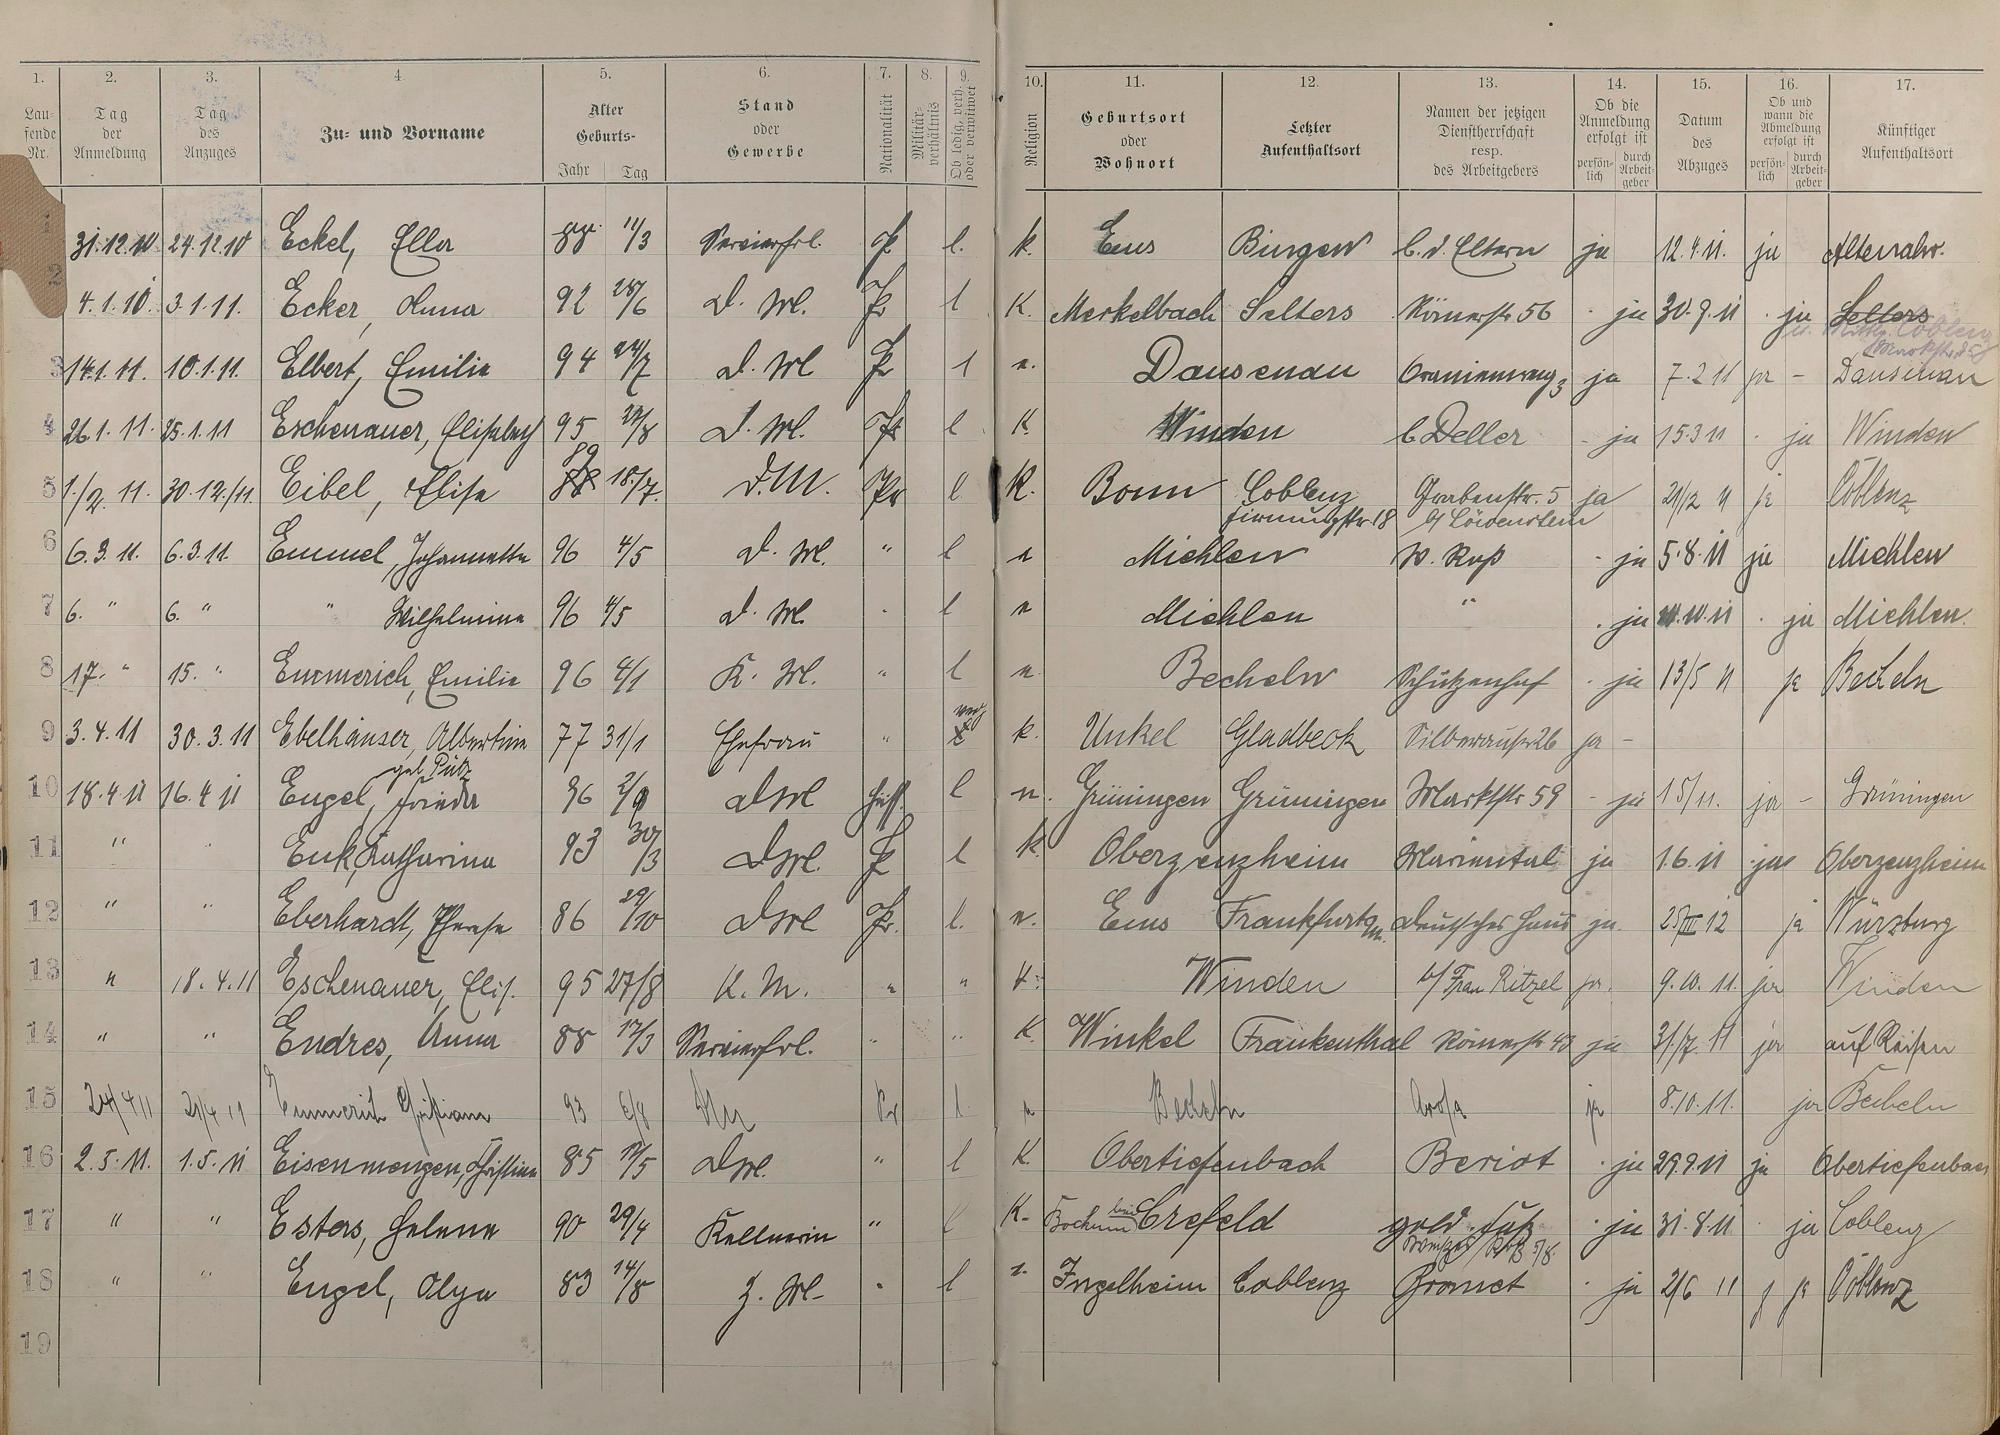 1. 2. 3. 4 5. 6. 7. 8. 9. 10. 11. 12. 13. 14. 15. 16. 17.
Laufende Nr.
Tag der Anmeldung
Tag des Anzuges
Zu- und Vorname
Alter Geburts-
Jahr Tag
Stand oder Gewerbe
Nationalität
Militär-verhältnis
Ob ledig, verh. oder verwitwet
Religion
Geburtsort oder Wohnort
Letzter Aufenthaltsort
Namen der jetzigen Dienstherrschaft resp. des Arbeitgebers
Ob die Anmeldung erfolgt ist
persön-lich durch Arbeit-geber
Datum des Abzuges
Ob und wann die Abmeldung erfolgt ist
persön-lich durch Arbeit-geber
Künftiger Aufenthaltsort
1 31.12.10 24.12.10 Eckel, Ella 88 11/3 Servierfrl. P l. k. Ems Bingen b. d. Eltern ja 12.4.11. ja Altenahr.
2 4.1.10. 3.1.11. Ecker, Anna 92 28/6 D. M. Pr l K. Merkelbach Selters Römerstr 56 ja 30.9.11 ja Selters
Coblenz
3 14.1.11. 10.1.11. Elbert, Emilie 94 24/7 D. M Pr l e. Dausenau Oranienweg 3 ja 7.2 11 ja - Dausenau
4 26.1.11. 25.1.11 Eschenauer, Elisabeth 95 27/8 D. M. Pr l K. Winden b. Deller - ja 15 3 11 ja Winden
5 1./2. 11. 30.12./11. Eibel, Elise 88 89 18./7. D. M. Pr l K. Bonn Coblenz Grabenstr. 5 ja 21/12 11 ja Coblenz
Firmungstr. 18 b/ Löwenstein
6 6.3.11. 6.3.11. Emmel, Johannette 96 4/5 D. M. " l e Miehlen W. Roß - ja 5.8.11 ja Miehlen
7 6. " 6. " " Wilhelmine 96 4/5 D. M. " l e Miehlen " ja 10.11 ja Miehlen.
8 17. " 15. " Emmerich, Emilie 96 4/1 K. M. " l e. Becheln Schützenhof ja 13/5 11 ja Becheln
9 3.4.11 30.3.11 Ebelhäuser, Albertine 77 31/1 Ehefrau " k. Unkel Gladbeck Silberaustr 26 ja -
geb. Pütz
10 18.4 11 16.4 11 Engel, Frieda 96 2/9 DM Hess. l e. Grüningen Grüningen Marktstr 59 - ja 15/11. ja - Grüningen
11 " " Enk, Katharina 93 30/3 DM. Pr l k. Oberzeuzheim Mariental ja 1.6.11 ja Oberzeuzheim
12 " " Eberhardt, Therese 86 29/10 DM Pr. l. e. Ems Frankfurt a/M. Deutsches Haus ja. 25/III 12 ja Würzburg
13 " 18.4.11 Eschenauer, Elis. 95 27/8 K. M. " " K. Winden b/ Frau Ritzel ja. 9.10.11. ja Winden
14 " " Endres, Anna 88 17/3 Servierfrl. " " K. Winkel Frankenthal Römerstr 43 ja 31./7. 11 ja auf Reisen
15 24/4 11 21/4 11 Emmerich Christiane 93 6/8 Pr l. e Becheln ja 8.10.11. ja Becheln
16 2.5.11. 1.5.11 Eisenmenger, Christine 85 DM. " l K. Obertiefenbach Beriot ja 29.9.11 ja Obertiefenbach
17 " " Esters, Helene 90 29/4 Kellnerin " l K. Bochum bei Crefeld gold. Faß ja 31.8.11 ja Coblenz
18 " " Engel, Olga 83 14/8 Z. M. " l e. Ingelheim Coblenz Bromet ja 2/6 11 ja Coblenz
19